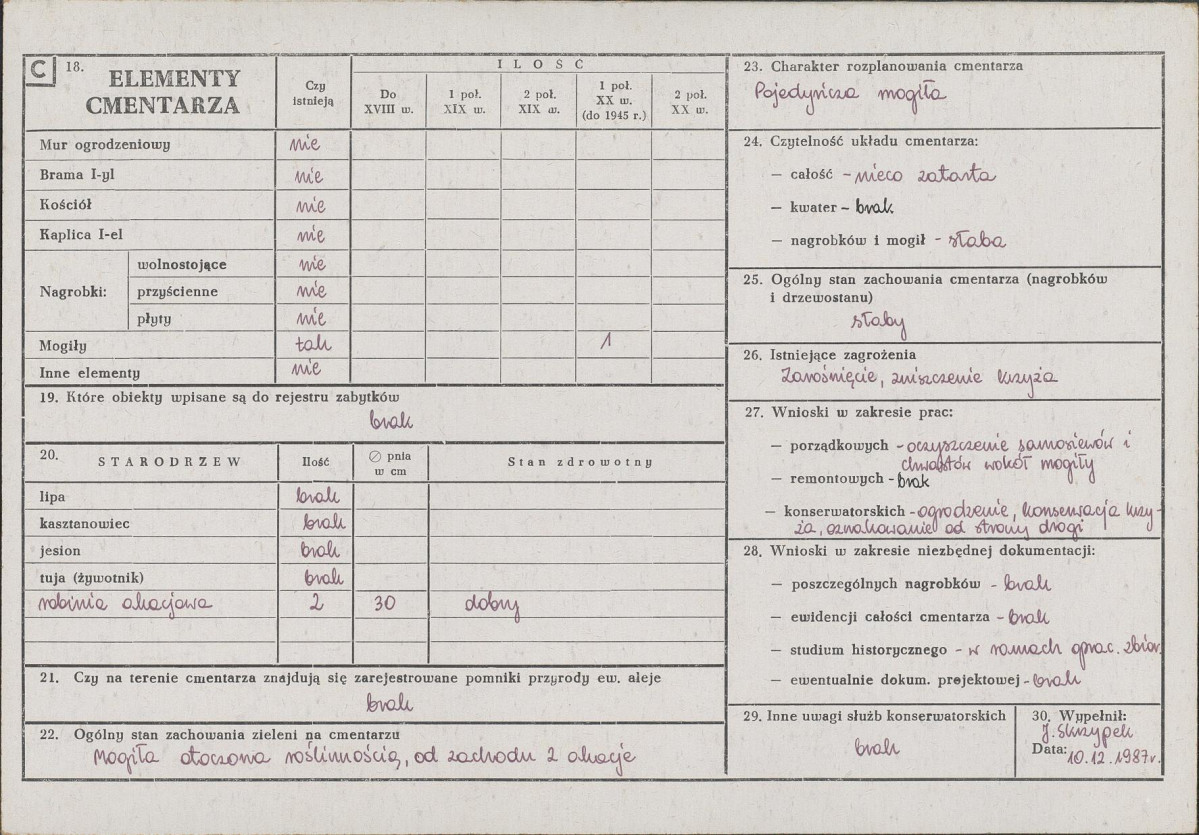 C 18. ELEMENTY
CMENTARZA
Czy
istnieją
ILOŚĆ
Do
XVIII w.
1 poł.
XIX w.
2 poł.
XIX w.
1 poł.
XX w.
(do 1945 r.)
2 poł.
XX w.
Mur ogrodzeniowy nie
Brama I-yl nie
Kościół nie
Kaplica I-el nie
Nagrobki:
wolnostojące nie
przyścienne nie
płyty nie
Mogiły tak 1
Inne elementy nie
19. Które obiekty wpisane są do rejestru zabytków
brak
20. STARODRZEW Ilość ∅ pnia
w cm
Stan zdrowotny
lipa brak
kasztanowiec brak
jesion brak
tuja (żywotnik) brak
robinia akacjowa 2 30 dobry
21. Czy na terenie cmentarza znajdują się zarejestrowane pomniki przyrody ew. aleje
brak
22. Ogólny stan zachowania zieleni na cmentarzu
Mogiła otoczona roślinnością, od zachodu 2 akacje
23. Charakter rozplanowania cmentarza
Pojedyńcza mogiła
24. Czytelność układu cmentarza:
— całość - nieco zatarta
— kwater - brak
— nagrobków i mogił - słaba
25. Ogólny stan zachowania cmentarza (nagrobków
i drzewostanu)
słaby
26. Istniejące zagrożenia
Zarośnięcie, zniszczenie krzyża
27. Wnioski w zakresie prac:
— porządkowych - oczyszczenie samosiewów i
chwastów wokół mogiły
— remontowych - brak
— konserwatorskich - ogrodzenie, konserwacja krzy-
ża, oznakowanie od strony drogi
28. Wnioski w zakresie niezbędnej dokumentacji:
— poszczególnych nagrobków - brak
— ewidencji całości cmentarza - brak
— studium historycznego - w ramach oprac. zbior.
— ewentualnie dokum. projektowej - brak
29. Inne uwagi służb konserwatorskich
brak
30. Wypełnił:
J. Skrzypek
Data:
10.12.1987r.